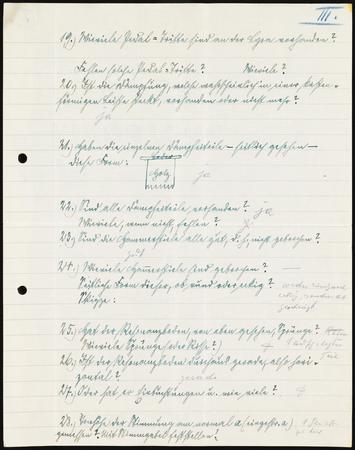 III.
19.) Wieviele Pedal=Tritte sind an der Lyra vorhanden?
Fehlen solche Pedal=Tritte? Wieviele?
20.) Ist die Dämpfung, welche wahrscheinlich in einer kasten-
förmigen Leiste steckt, vorhanden oder nicht mehr?
ja
21.) Haben die einzelnen Dämpferteile – seitlich gesehen –
diese Form:
Leder
Holz
ja
22.) Sind alle Dämpferteile vorhanden? ja
Wieviele, wenn nicht, fehlen?
23.) Sind die Hammerstiele alle gut, d. h. nicht gebrochen?
gut
24.) Wieviele Hammerstiele sind gebrochen? —
Seitliche Form dieser, ob rund oder eckig?
Skizze:
25.) Hat der Resonanzboden, von oben gesehen, Sprünge?
Wieviele Sprünge (oder Risse?)
26.) Ist der Resonanzboden durchaus gerade, also hori-
zontal? gerade
27.) Oder hat er Ausbuchtungen u. wie viele?
28.) Tonhöhe der Stimmung am normal a (eingestr. a)
gemessen? Mit Stimmgabel feststellen!